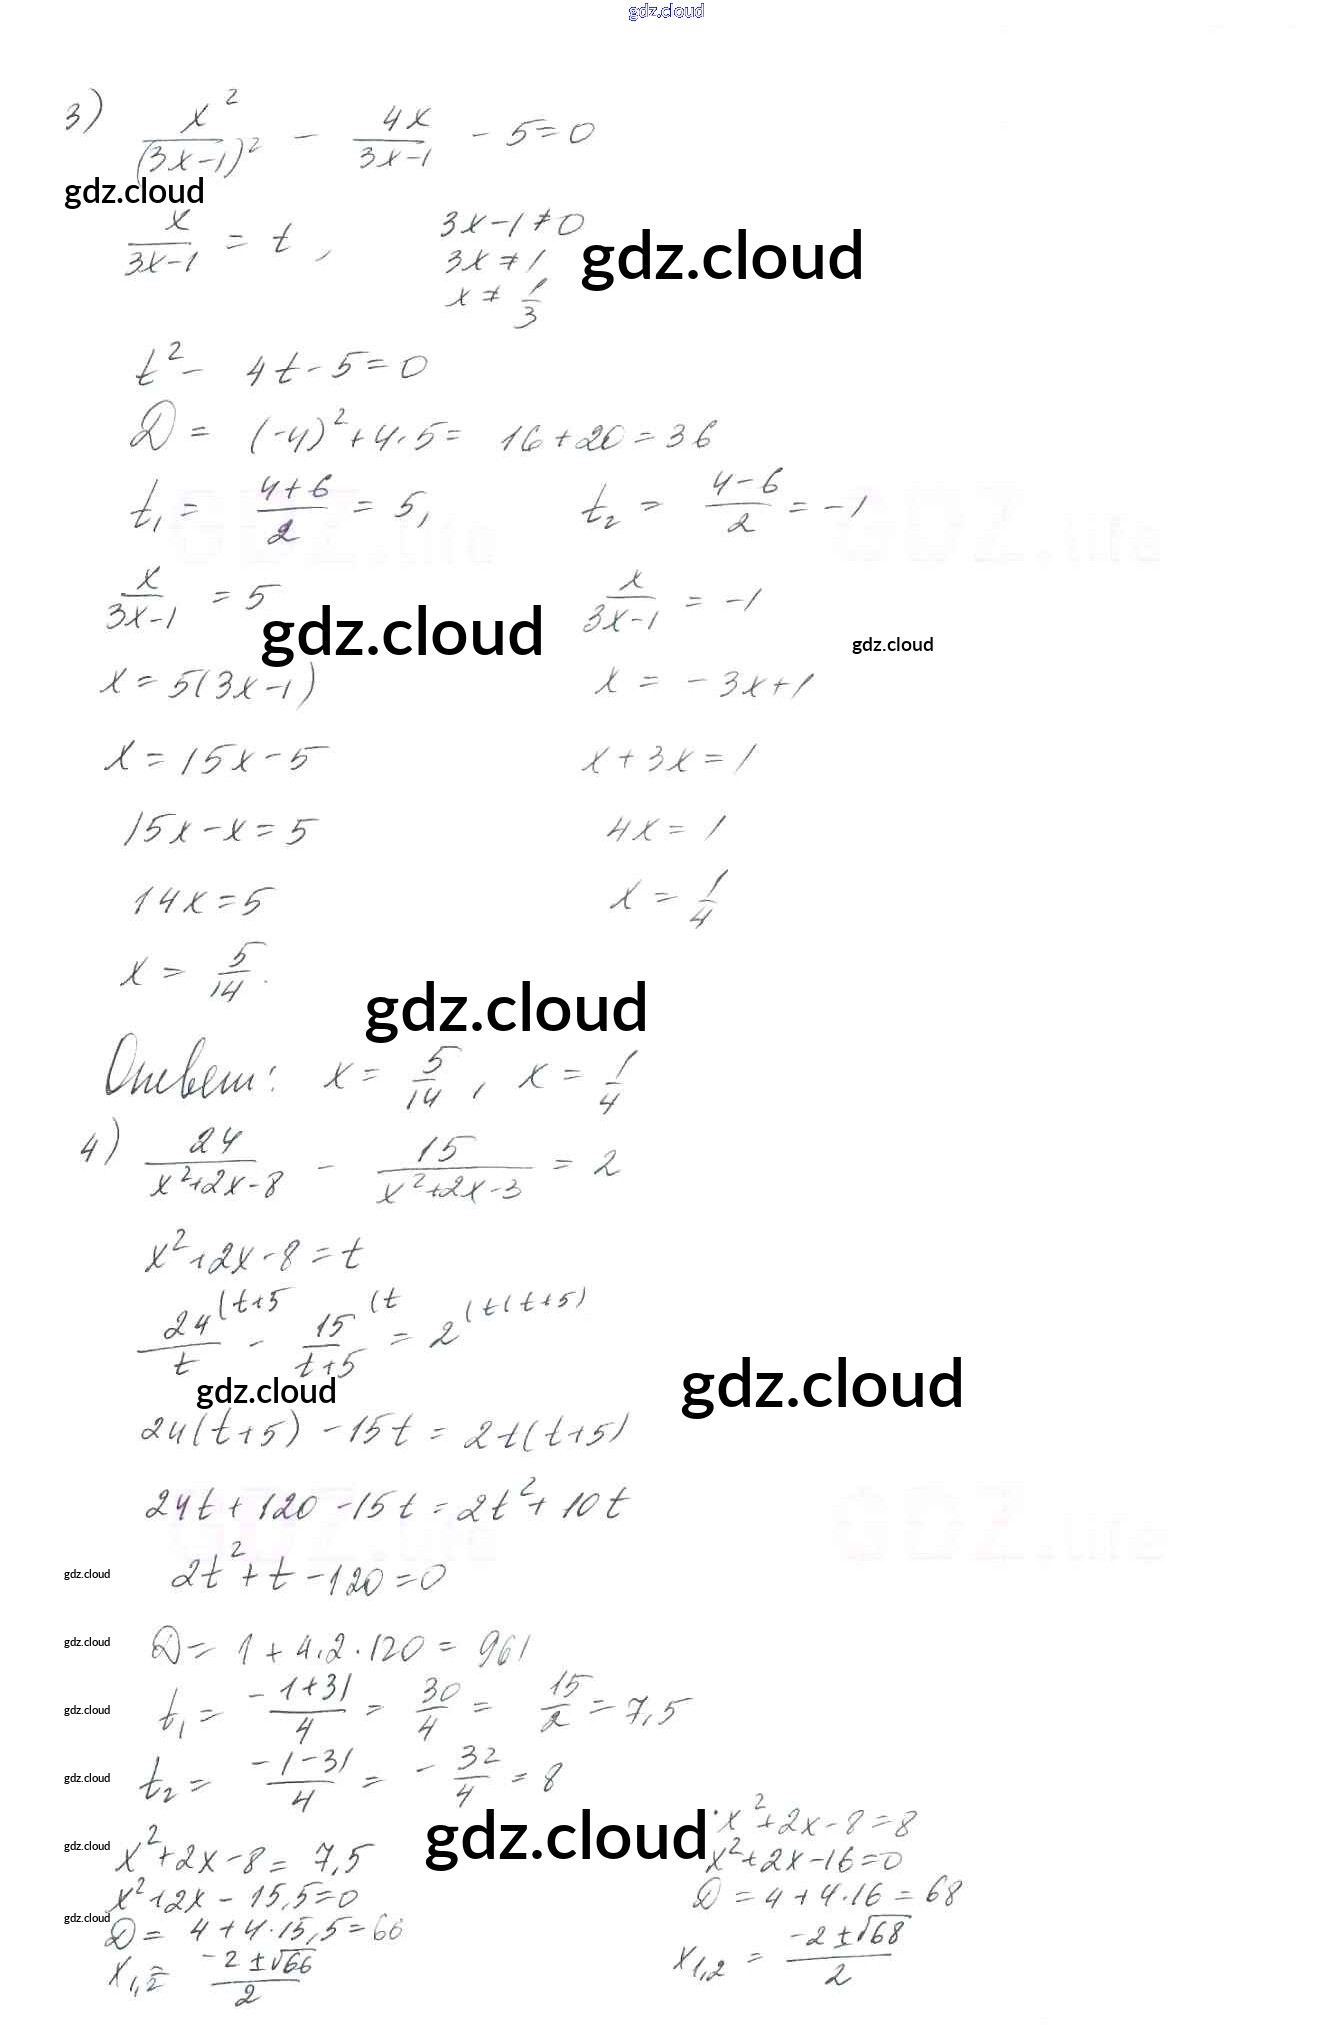 gdz.cloud
3) x²/(3x-1)² - 4x/3x-1 - 5=0
gdz.cloud
x/3x-1 = t, 3x-1≠0
3x≠1
gdz.cloud
x≠1/3
t² - 4t-5=0
D = (-4)²+4·5= 16+20=36
t₁ = 4+6/2 = 5, t₂ = 4-6/2 = -1
GDZ.life GDZ.life
x/3x-1 = 5 x/3x-1 = -1
gdz.cloud gdz.cloud
x=5(3x-1) x = -3x+1
x=15x-5 x+3x=1
15x-x=5 4x=1
14x=5 x=1/4
x = 5/14.
gdz.cloud
Ответ: x= 5/14, x=1/4
4) 24/x²+2x-8 - 15/x²+2x-3 = 2
x²+2x-8=t
24/t (t+5 - 15/t+5 (t = 2 (t(t+5)
gdz.cloud gdz.cloud
24(t+5)-15t=2t(t+5)
24t+120-15t=2t²+10t
GDZ.life GDZ.life
gdz.cloud 2t²+t-120=0
gdz.cloud D= 1+4·2·120= 961
gdz.cloud t₁= -1+31/4 = 30/4 = 15/2 =7,5
gdz.cloud t₂= -1-31/4 = -32/4 = 8
gdz.cloud
gdz.cloud x²+2x-8= 7,5 x²+2x-8=8
x²+2x-15,5=0 x²+2x-16=0
gdz.cloud D= 4+4·15,5=66 D=4+4·16=68
x₁,₂= -2±√66/2 x₁,₂ = -2±√68/2